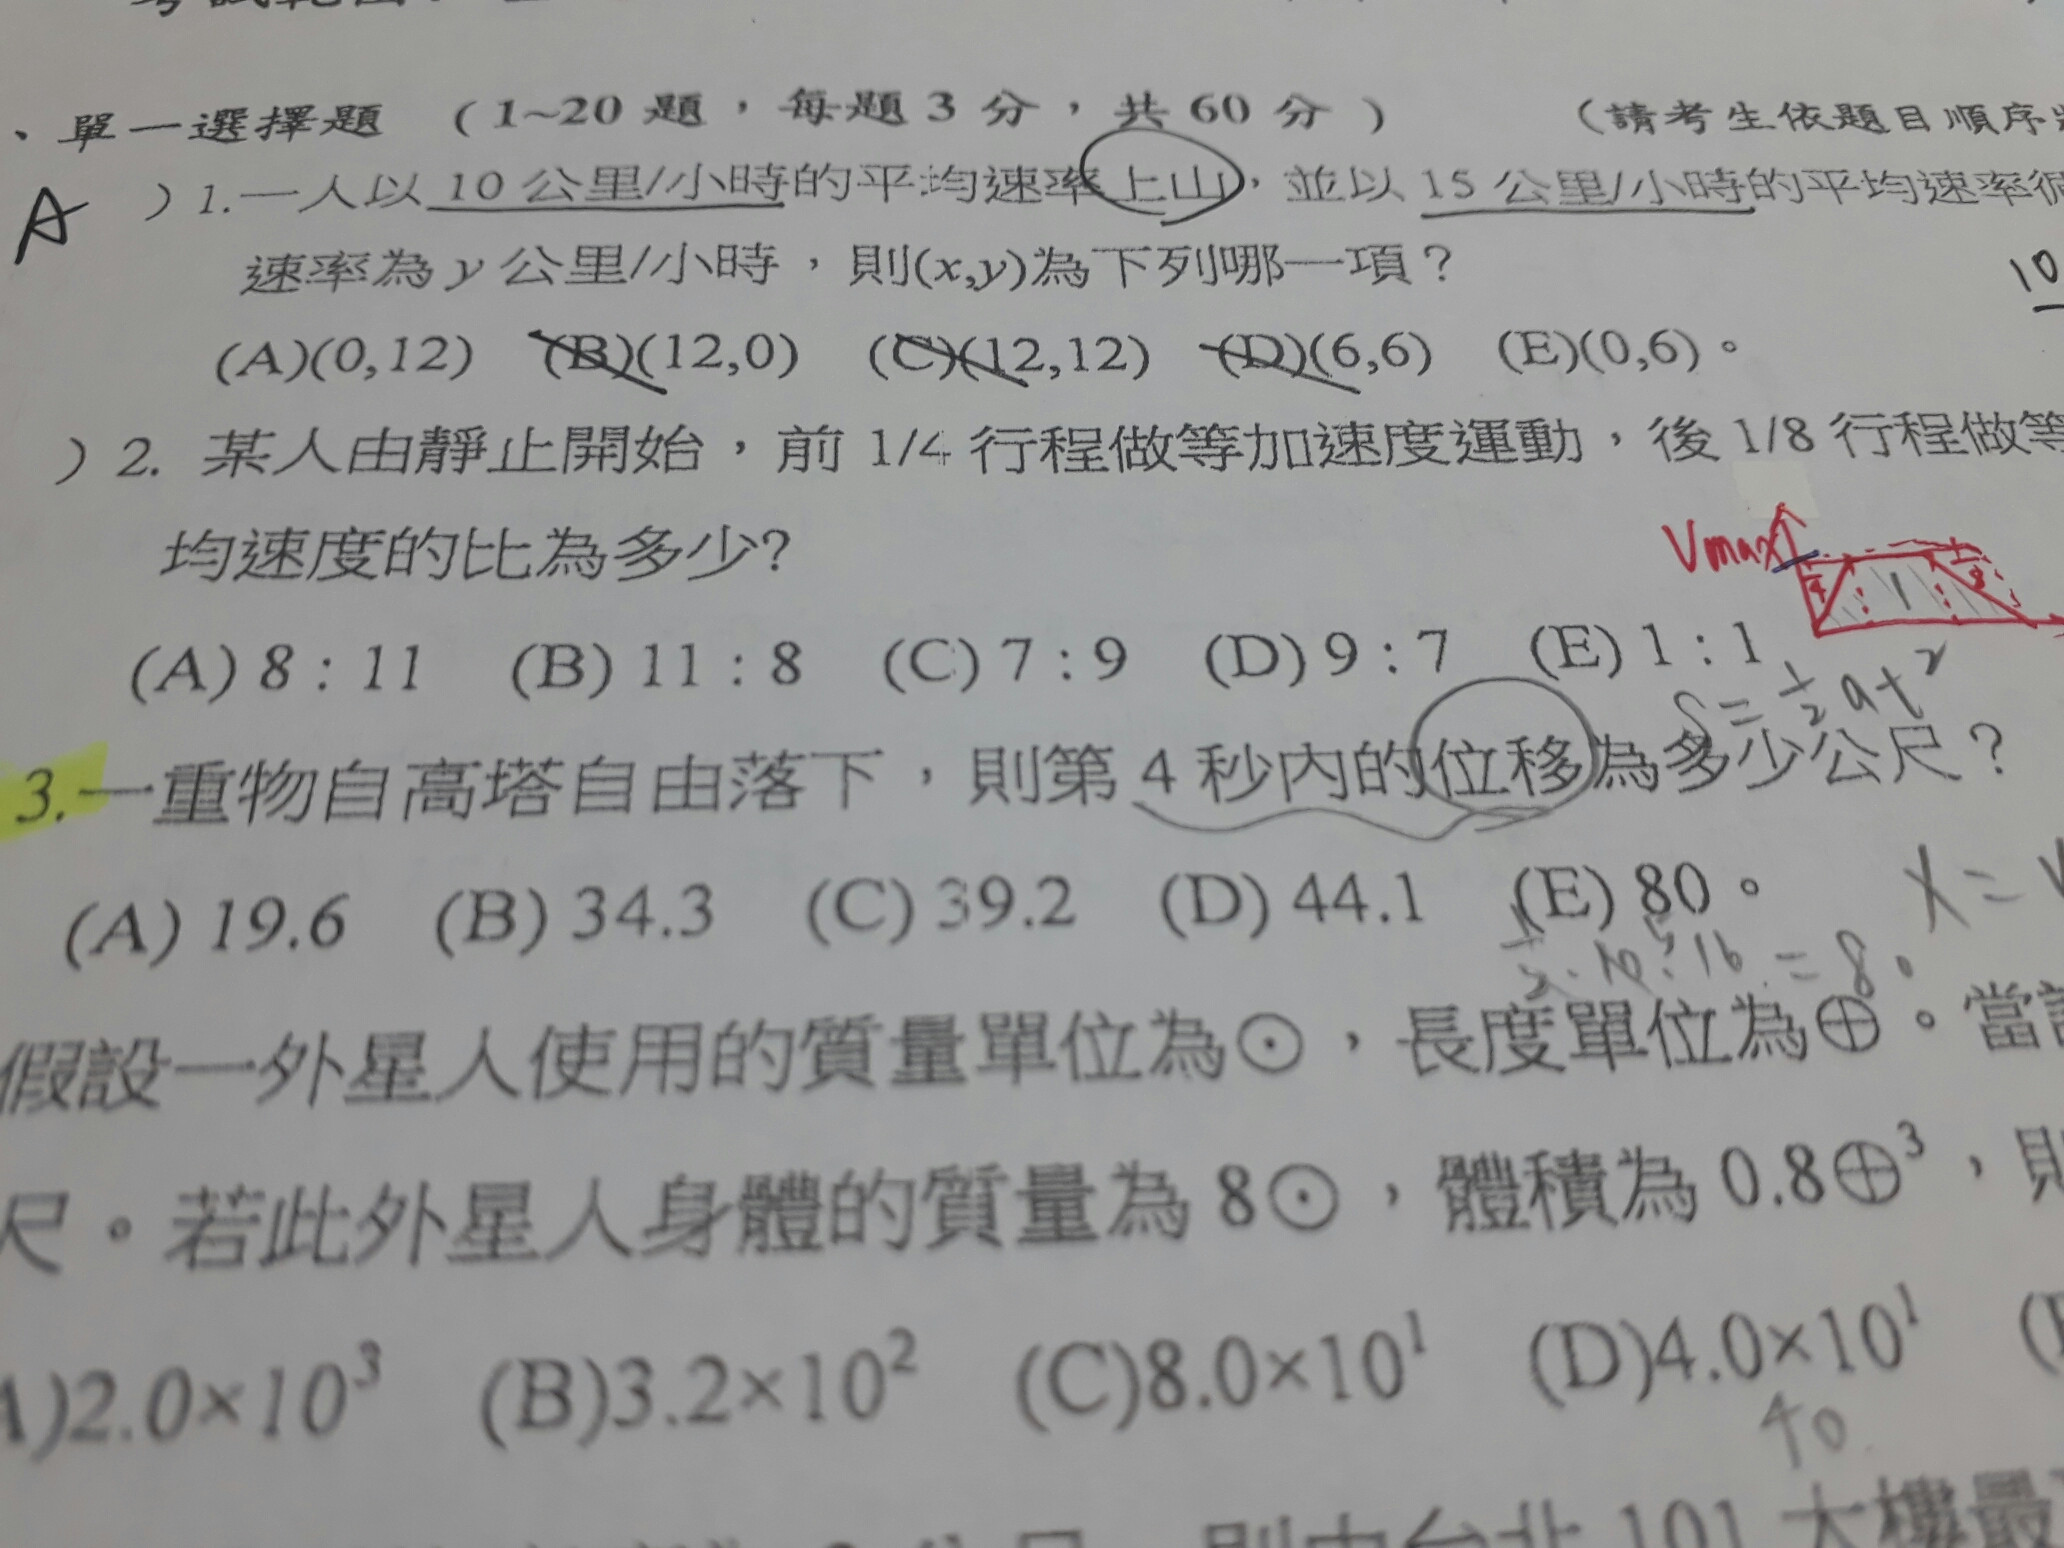 、單一選擇題 (1~20 題,每題 3 分,共 60 分) (請考生依題目順序
A )1.一人以 10 公里/小時的平均速率上山,並以 15 公里/小時的平均速率循
速率為 y 公里/小時,則(x,y)為下列哪一項?
10
(A)(0,12) (B)(12,0) (C)(12,12) (D)(6,6) (E)(0,6)。
)2. 某人由靜止開始,前 1/4 行程做等加速度運動,後 1/8 行程做等
均速度的比為多少?
Vmax
1
(A) 8:11 (B) 11:8 (C) 7:9 (D) 9:7 (E) 1:1
S=½at²
3.一重物自高塔自由落下,則第 4 秒內的位移為多少公尺?
(A) 19.6 (B) 34.3 (C) 39.2 (D) 44.1 (E) 80。
x=
½·10·16=80
假設一外星人使用的質量單位為⊙,長度單位為⊕。當
尺。若此外星人身體的質量為 8⊙,體積為 0.8⊕³,則
A)2.0×10³ (B)3.2×10² (C)8.0×10¹ (D)4.0×10¹
40
101 大樓最